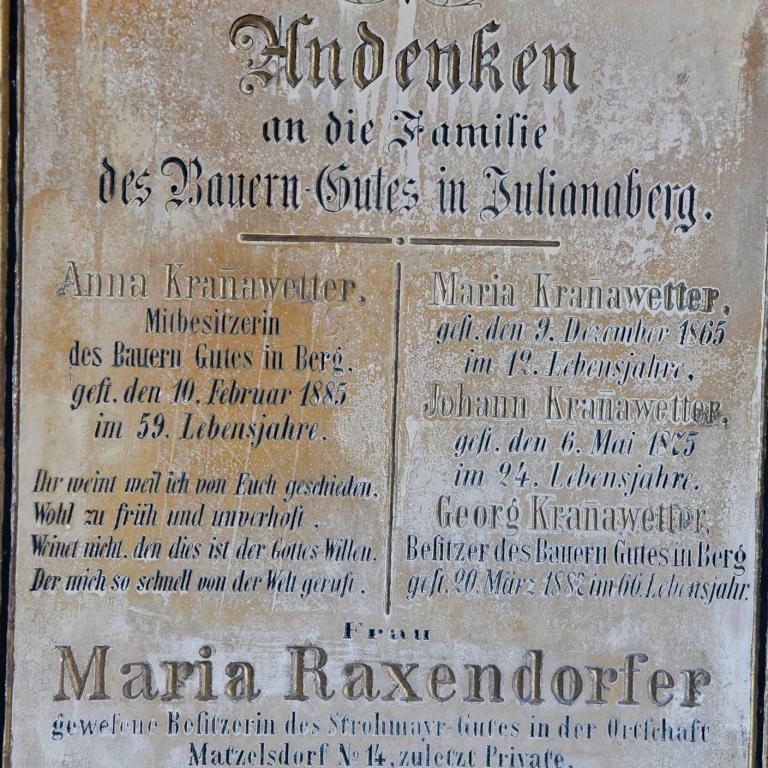 Andenken
an die Familie
des Bauern-Gutes in Julianaberg.
Anna Kran̄awetter,
Mitbesitzerin
des Bauern Gutes in Berg,
gest. den 10. Februar 1885
im 59. Lebensjahre.
Ihr weint weil ich von Euch geschieden,
Wohl zu früh und unverhoft,
Weinet nicht, den dies ist der Gottes-Willen,
Der mich so schnell von der Welt geruft.
Maria Kran̄awetter,
gest. den 9. Dezember 1865
im 12. Lebensjahre,
Johann Kran̄awetter,
gest. den 6. Mai 1875
im 24. Lebensjahre.
Georg Kran̄awetter,
Besitzer des Bauern Gutes in Berg
gest. 20. März 1887 im 66. Lebensjahr.
Frau
Maria Raxendorfer
gewesene Besitzerin des Strohmayr-Gutes in der Ortschaft
Matzelsdorf No 14, zuletzt Private,